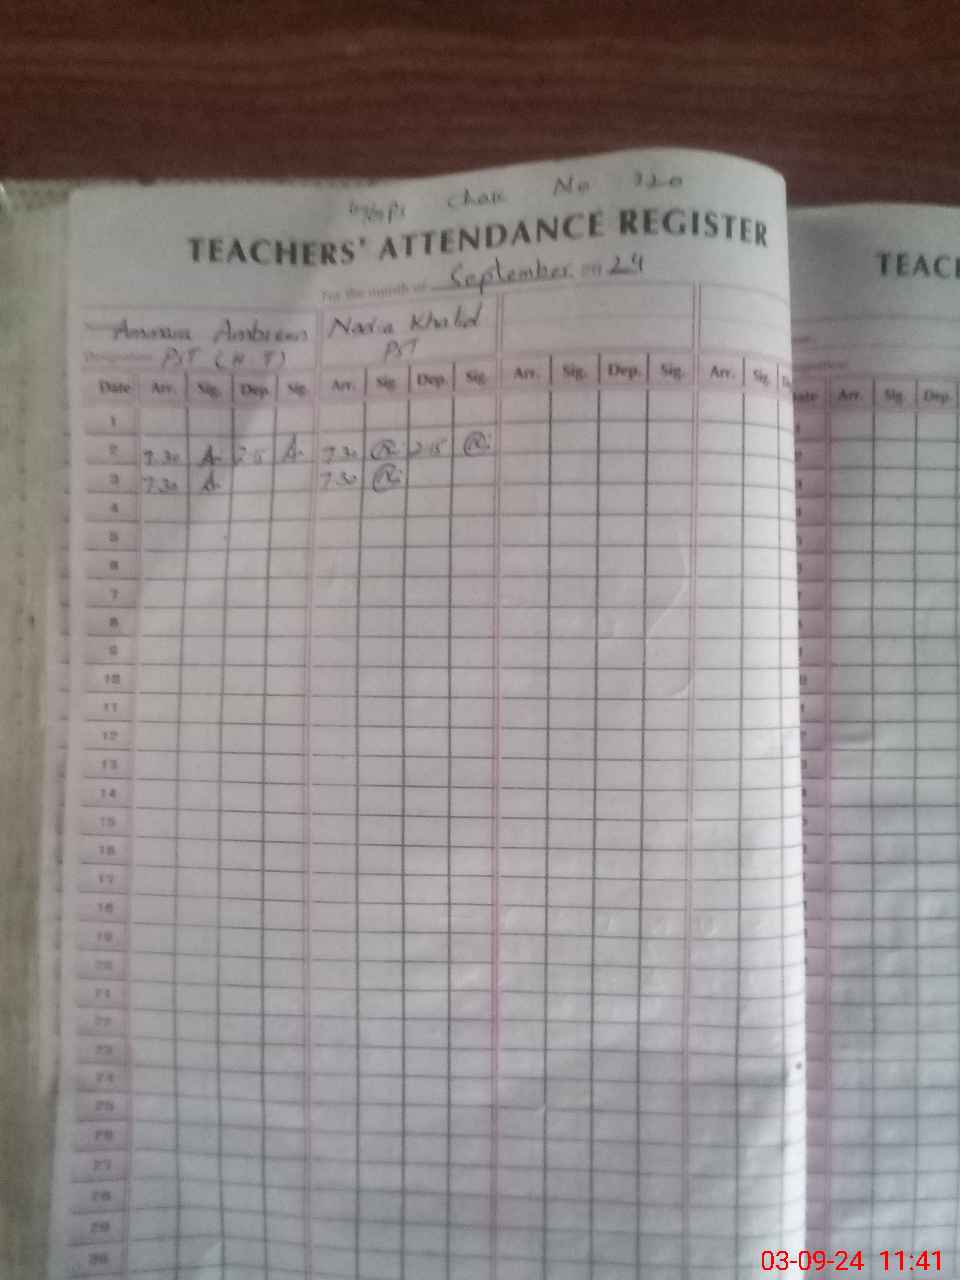 Chak No 320
TEACHERS' ATTENDANCE REGISTER
For the month of September 24
Ammara Ambreen Nadia Khalid
Designation PST (H T) PST
Date Arr. Sig. Dep. Sig. Arr. Sig. Dep. Sig. Arr. Sig. Dep. Sig. Arr. Sig.
1
2 7.30 A 2.15 A 7.30 2.15
3 7.30 A 7.30
4
5
6
7
8
9
10
11
12
13
14
15
16
17
18
19
20
21
22
23
24
25
26
27
28
29
30
TEAC
Arr. Sig. Dep.
03-09-24 11:41